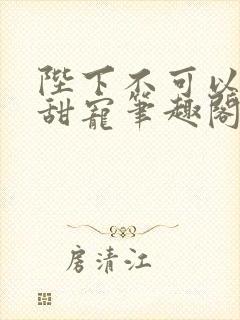 陛下不可以
甜宠笔趣阁
房清江